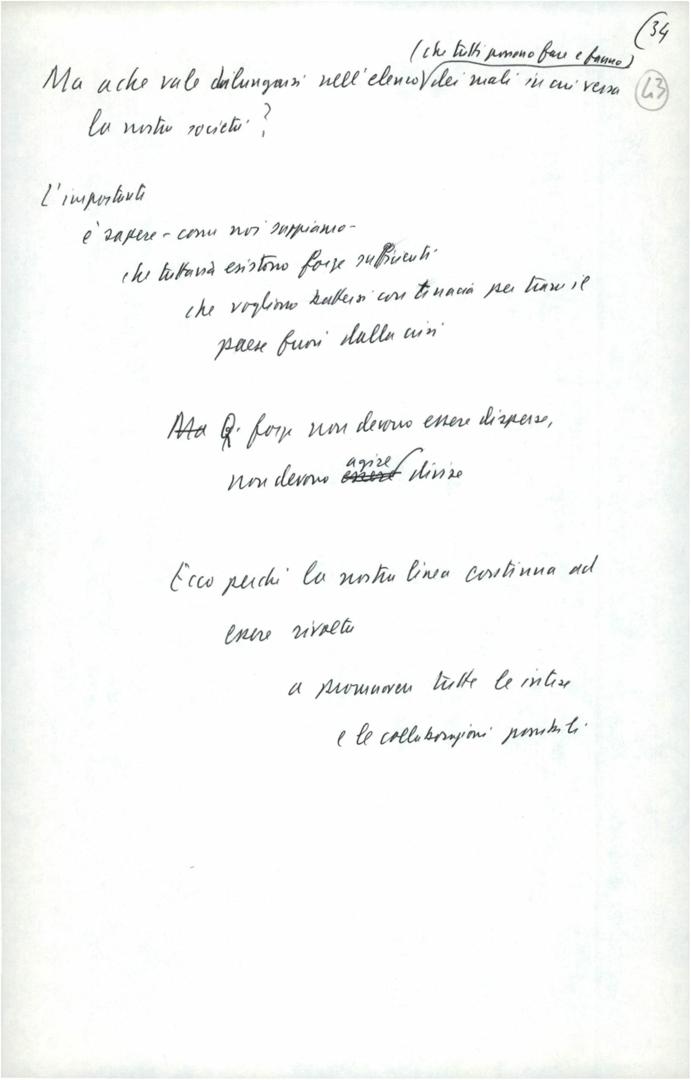 (34
(che tutti possono fare e fanno)
Ma a che vale dilungarsi nell'elenco dei mali in cui versa
43
la nostra società?
L'importante
è sapere - come noi sappiamo -
che tuttavia esistono forze sufficienti
che vogliono battersi con tenacia per trarre il
paese fuori dalla crisi
Ma Q. forze non devono essere disperse,
agire
non devono essere divise
Ecco perché la nostra linea continua ad
essere rivolta
a promuovere tutte le intese
e le collaborazioni possibili.